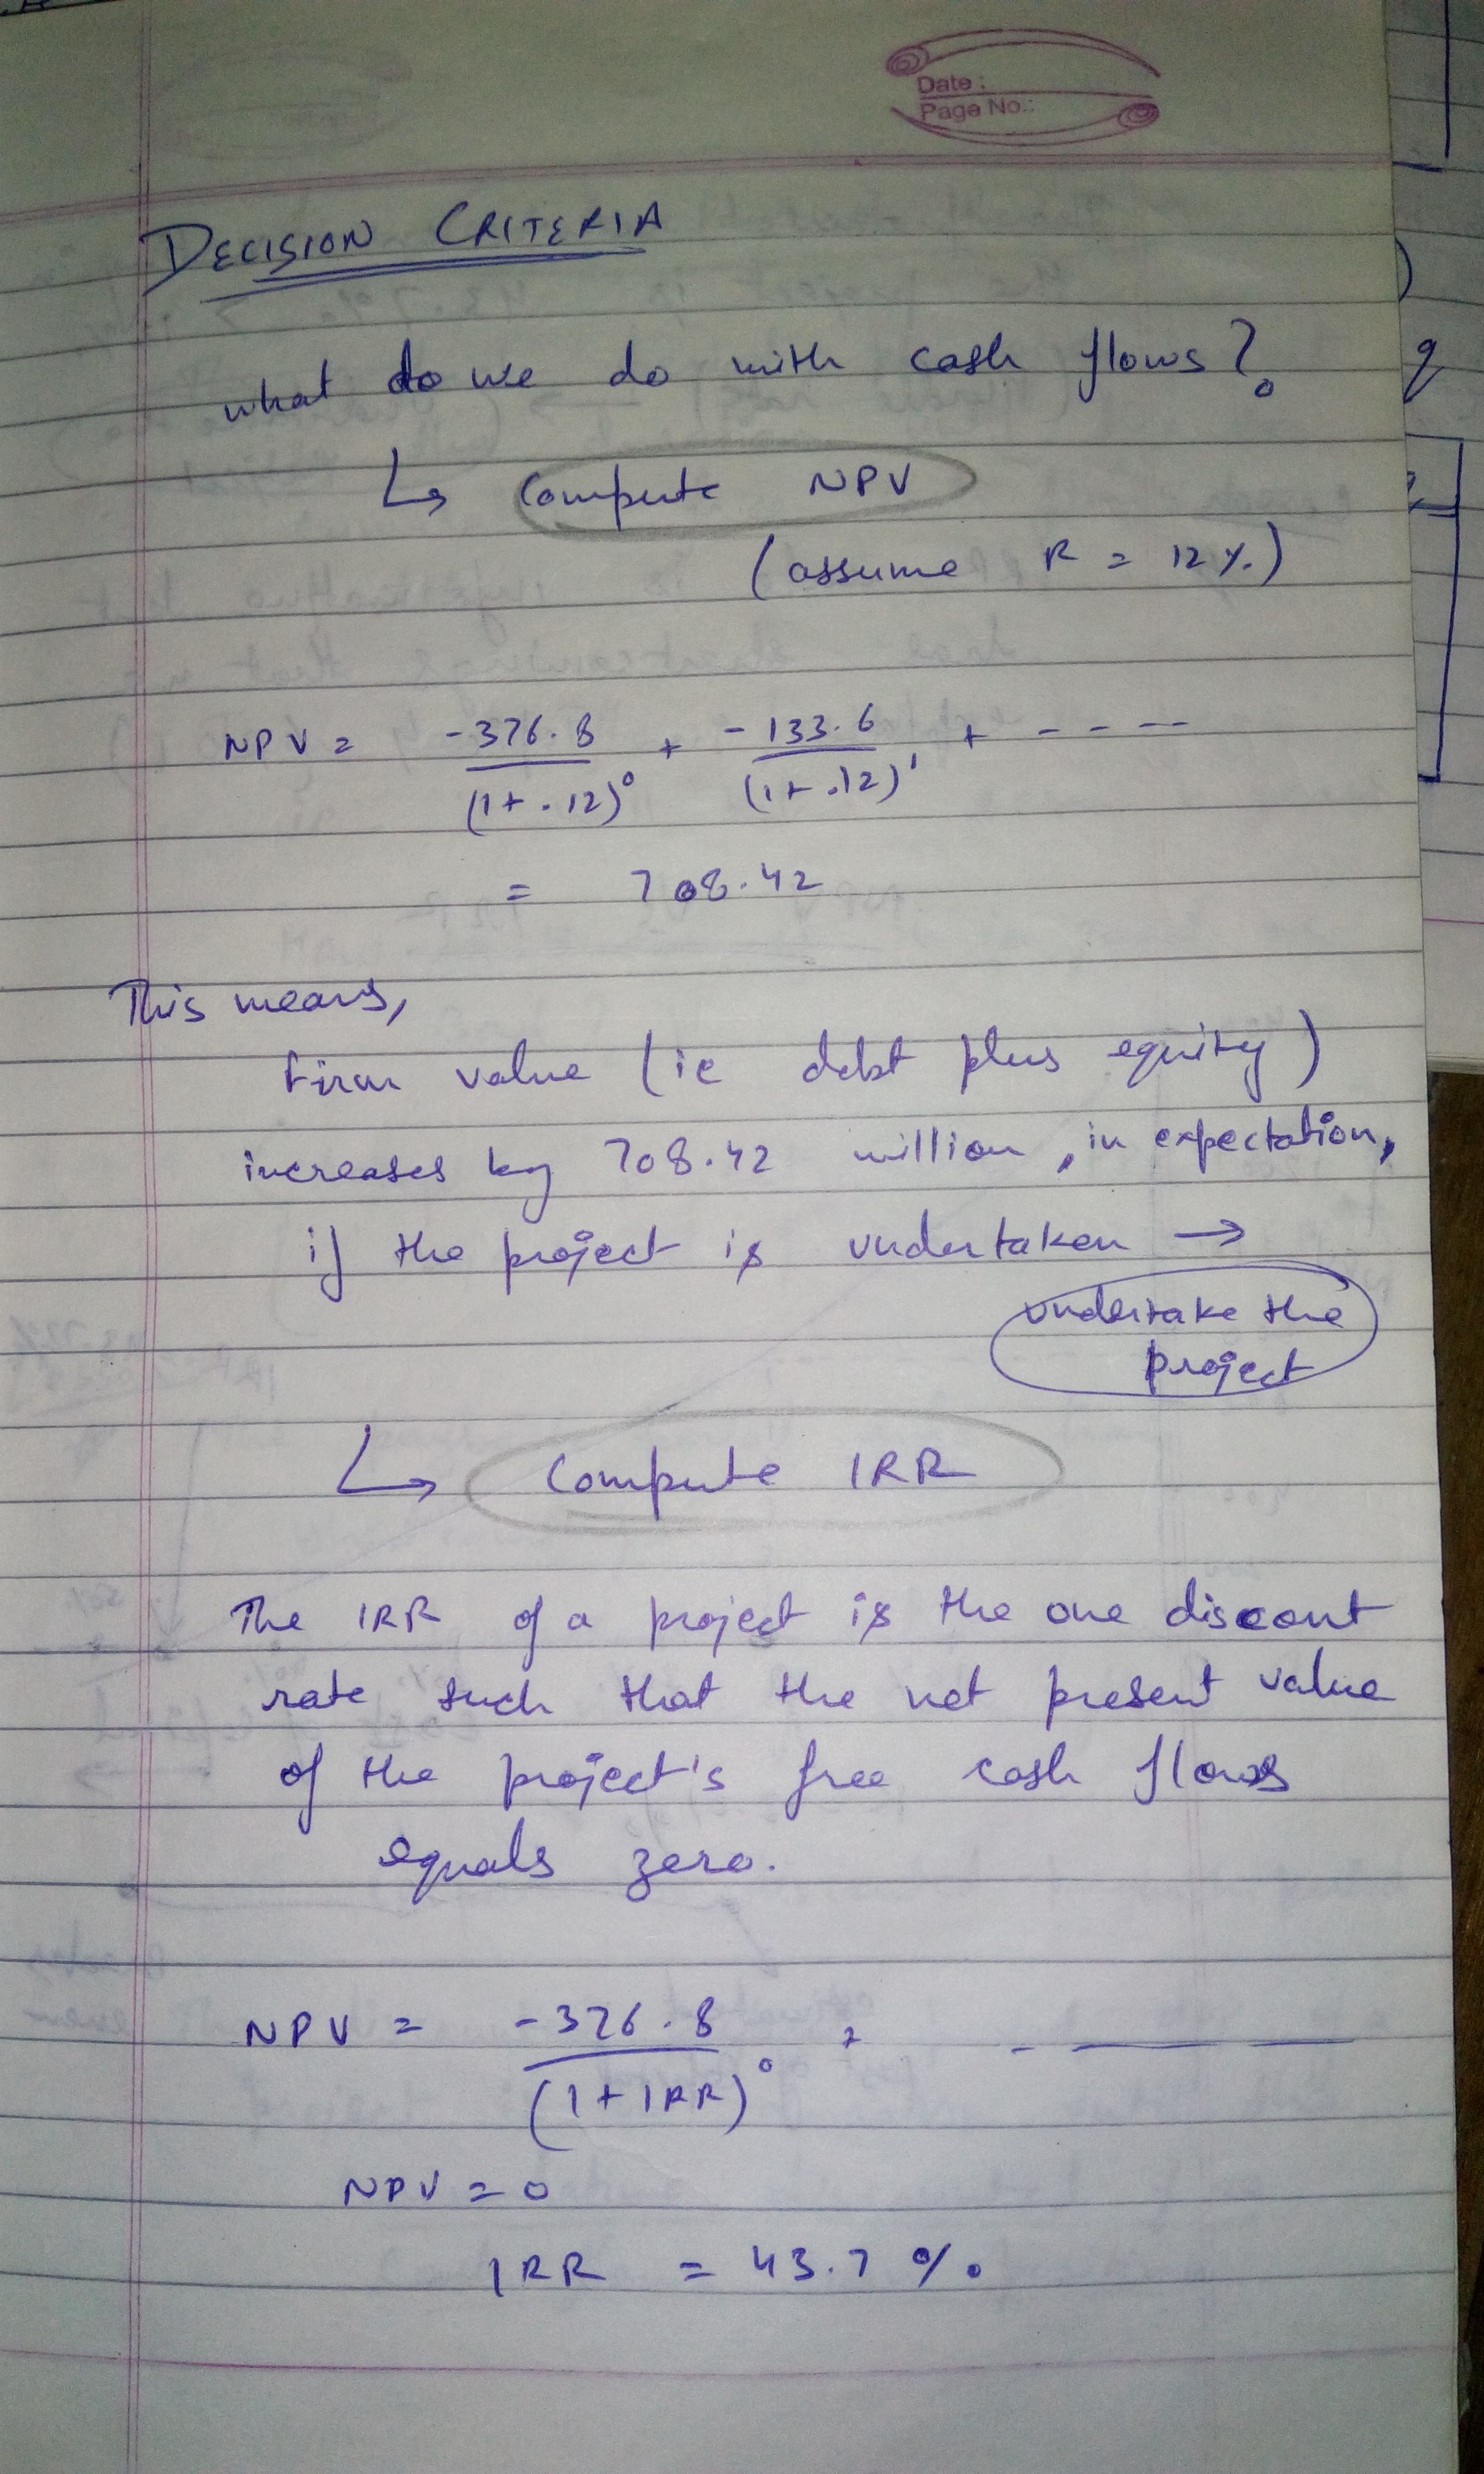 Date :
Page No.:
DECISION CRITERIA
what do we do with cash flows?
↳ Compute NPV
(assume R = 12%)
NPV = -376.8 / (1+.12)^0 + -133.6 / (1+.12)^1 + - - - -
= 708.42
This means,
firm value (ie debt plus equity)
increases by 708.42 million, in expectation,
if the project is undertaken →
undertake the
project
↳ Compute IRR
The IRR of a project is the one discont
rate such that the net present value
of the project's free cash flows
equals zero.
NPV = -376.8 / (1+IRR)^0 + - — —
NPV = 0
IRR = 43.7 %